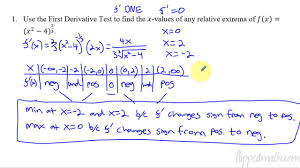 f' ONE f'=0
1. Use the First Derivative Test to find the x-values of any relative extrema of f(x) =
(x² − 4)^(2/3). f'(x) = 2/3 (x²-4)^(-1/3) (2x) = 4x / 3∛(x²-4)
x=0
x=2
x=-2
x | (-∞,-2) | -2 | (-2,0) | 0 | (0,2) | 2 | (2,∞)
f'(x) | neg | und | pos | 0 | neg | und | pos
min at x=-2 and x=2 b/c f' changes sign from neg to pos.
max at x=0 b/c f' changes sign from pos to neg.
flippedmath.com